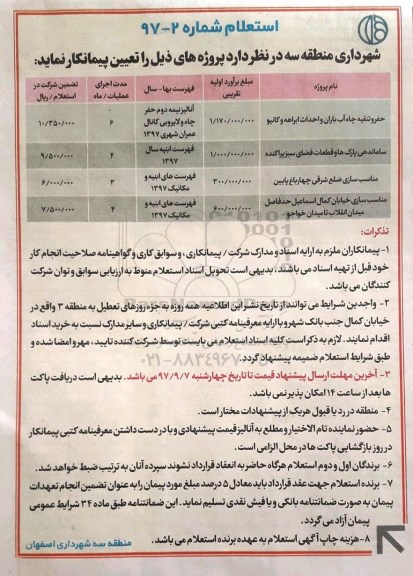 استعلام شماره ۲-۹۷
شهرداری منطقه سه در نظر دارد پروژه های ذیل را تعیین پیمانکار نماید:
نام پروژه | مبلغ برآورد اولیه تقریبی | فهرست بها - سال | مدت اجرای عملیات / ماه | تضمین شرکت در استعلام / ریال
حفر و تنقیه چاه آب باران و احداث ابراهه و کانیو | ۱/۱۷۰/۰۰۰/۰۰۰ | آنالیز نیمه دوم حفر چاه و لایروبی کانال عمران شهری ۱۳۹۷ | ۶ | ۱۰/۳۵۰/۰۰۰
ساماندهی پارک ها و قطعات فضای سبز پراکنده | ۱/۰۰۰/۰۰۰/۰۰۰ | فهرست ابنیه سال ۱۳۹۷ | ۴ | ۹/۵۰۰/۰۰۰
مناسب سازی ضلع شرقی چهارباغ پایین | ۳۰۰/۰۰۰/۰۰۰ | فهرست های ابنیه و مکانیک ۱۳۹۷ | ۳ | ۶/۰۰۰/۰۰۰
مناسب سازی خیابان کمال اسماعیل حدفاصل میدان انقلاب تا میدان خواجو | ۶۰۰/۰۰۰/۰۰۰ | فهرست های ابنیه و مکانیک ۱۳۹۷ | ۴ | ۷/۵۰۰/۰۰۰
تذکرات:
۱- پیمانکاران ملزم به ارایه اسناد و مدارک شرکت / پیمانکاری ، و سوابق کاری و گواهینامه صلاحیت انجام کار
خود قبل از تهیه اسناد می باشند، بدیهی است تحویل اسناد استعلام منوط به ارزیابی سوابق و توان شرکت
کنندگان می باشد.
۲- واجدین شرایط می توانند از تاریخ نشر این اطلاعیه همه روزه به جزء روزهای تعطیل به منطقه ۳ واقع در
خیابان کمال جنب بانک شهر و با ارایه معرفینامه کتبی شرکت / پیمانکاری و سایر مدارک نسبت به خرید اسناد
اقدام نمایند. لازم به ذکر است کلیه اسناد استعلام می بایست توسط شرکت کننده تایید ، مهر و امضا شده و
طبق شرایط استعلام ضمیمه پیشنهاد گردد.
۳- آخرین مهلت ارسال پیشنهاد قیمت تا تاریخ چهارشنبه ۹۷/۹/۷ می باشد. بدیهی است دریافت پاکت
ها بعد از ساعت ۱۴ امکان پذیر نمی باشد.
۴- منطقه در رد یا قبول هر یک از پیشنهادات مختار است.
۵- حضور نماینده تام الاختیار و مطلع به آنالیز قیمت پیشنهادی و با در دست داشتن معرفینامه کتبی پیمانکار
در روز بازگشایی پاکت ها در محل الزامی است.
۶- برندگان اول و دوم استعلام هرگاه حاضر به انعقاد قرارداد نشوند سپرده آنان به ترتیب ضبط خواهد شد.
۷- برنده استعلام جهت عقد قرارداد باید معادل ۵ درصد مبلغ مورد پیمان را به عنوان تضمین انجام تعهدات
پیمان به صورت ضمانتنامه بانکی و یا فیش نقدی تسلیم نماید . این ضمانتنامه طبق ماده ۳۴ شرایط عمومی
پیمان آزاد می گردد.
۸- هزینه چاپ آگهی استعلام به عهده برنده استعلام می باشد.
منطقه سه شهرداری اصفهان